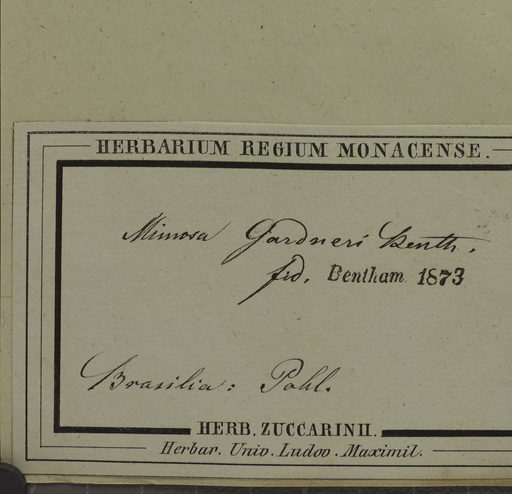 HERBARIUM REGIUM MONACENSE.
Mimosa Gardneri Benth.
fid. Bentham 1873
Brasilia: Pohl.
HERB. ZUCCARINII.
Herbar. Univ. Ludov. Maximil.